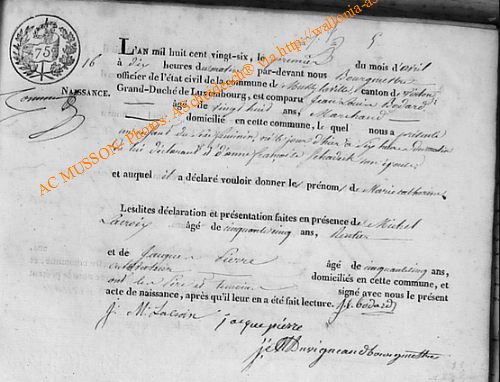 75
16
NAISSANCE.
L'AN mil huit cent vingt-six, le premier du mois d'avril
à dix heures du matin par-devant nous Bourgmestre
officier de l'état civil de la commune de canton de
Grand-Duché de Luxembourg, est comparu Jean Louis Bodard
âgé de vingt huit ans, Marchand
domicilié en cette commune, lequel nous a présenté
un enfant du sexe féminin, né le jour d'hier à sept heures
de lui déclarant et d'anne françoise son épouse
et auquel il a déclaré vouloir donner les prénoms de Marie catherine
Lesdites déclaration et présentation faites en présence de Michel
Lacroix âgé de cinquante cinq ans, Rentier
et de Jacques Pierre âgé de cinquante cinq ans,
cultivateur domiciliés en cette commune, et
ont les Père et témoins signé avec nous le présent
acte de naissance, après qu'il leur en a été fait lecture. J. L. bodard
J. M. Lacroix jacque pierre
Duvigneaud bourgmestre
AC MUSSON - Photos: Archivedech @ via http://wallonia-as